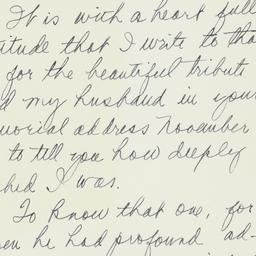 It is with a heart full
titude that I write to tha
for the beautiful tribute
d my husband in your
morial address November
to tell you how deeply
hed I was.
To know that one, for
en he had profound ad-